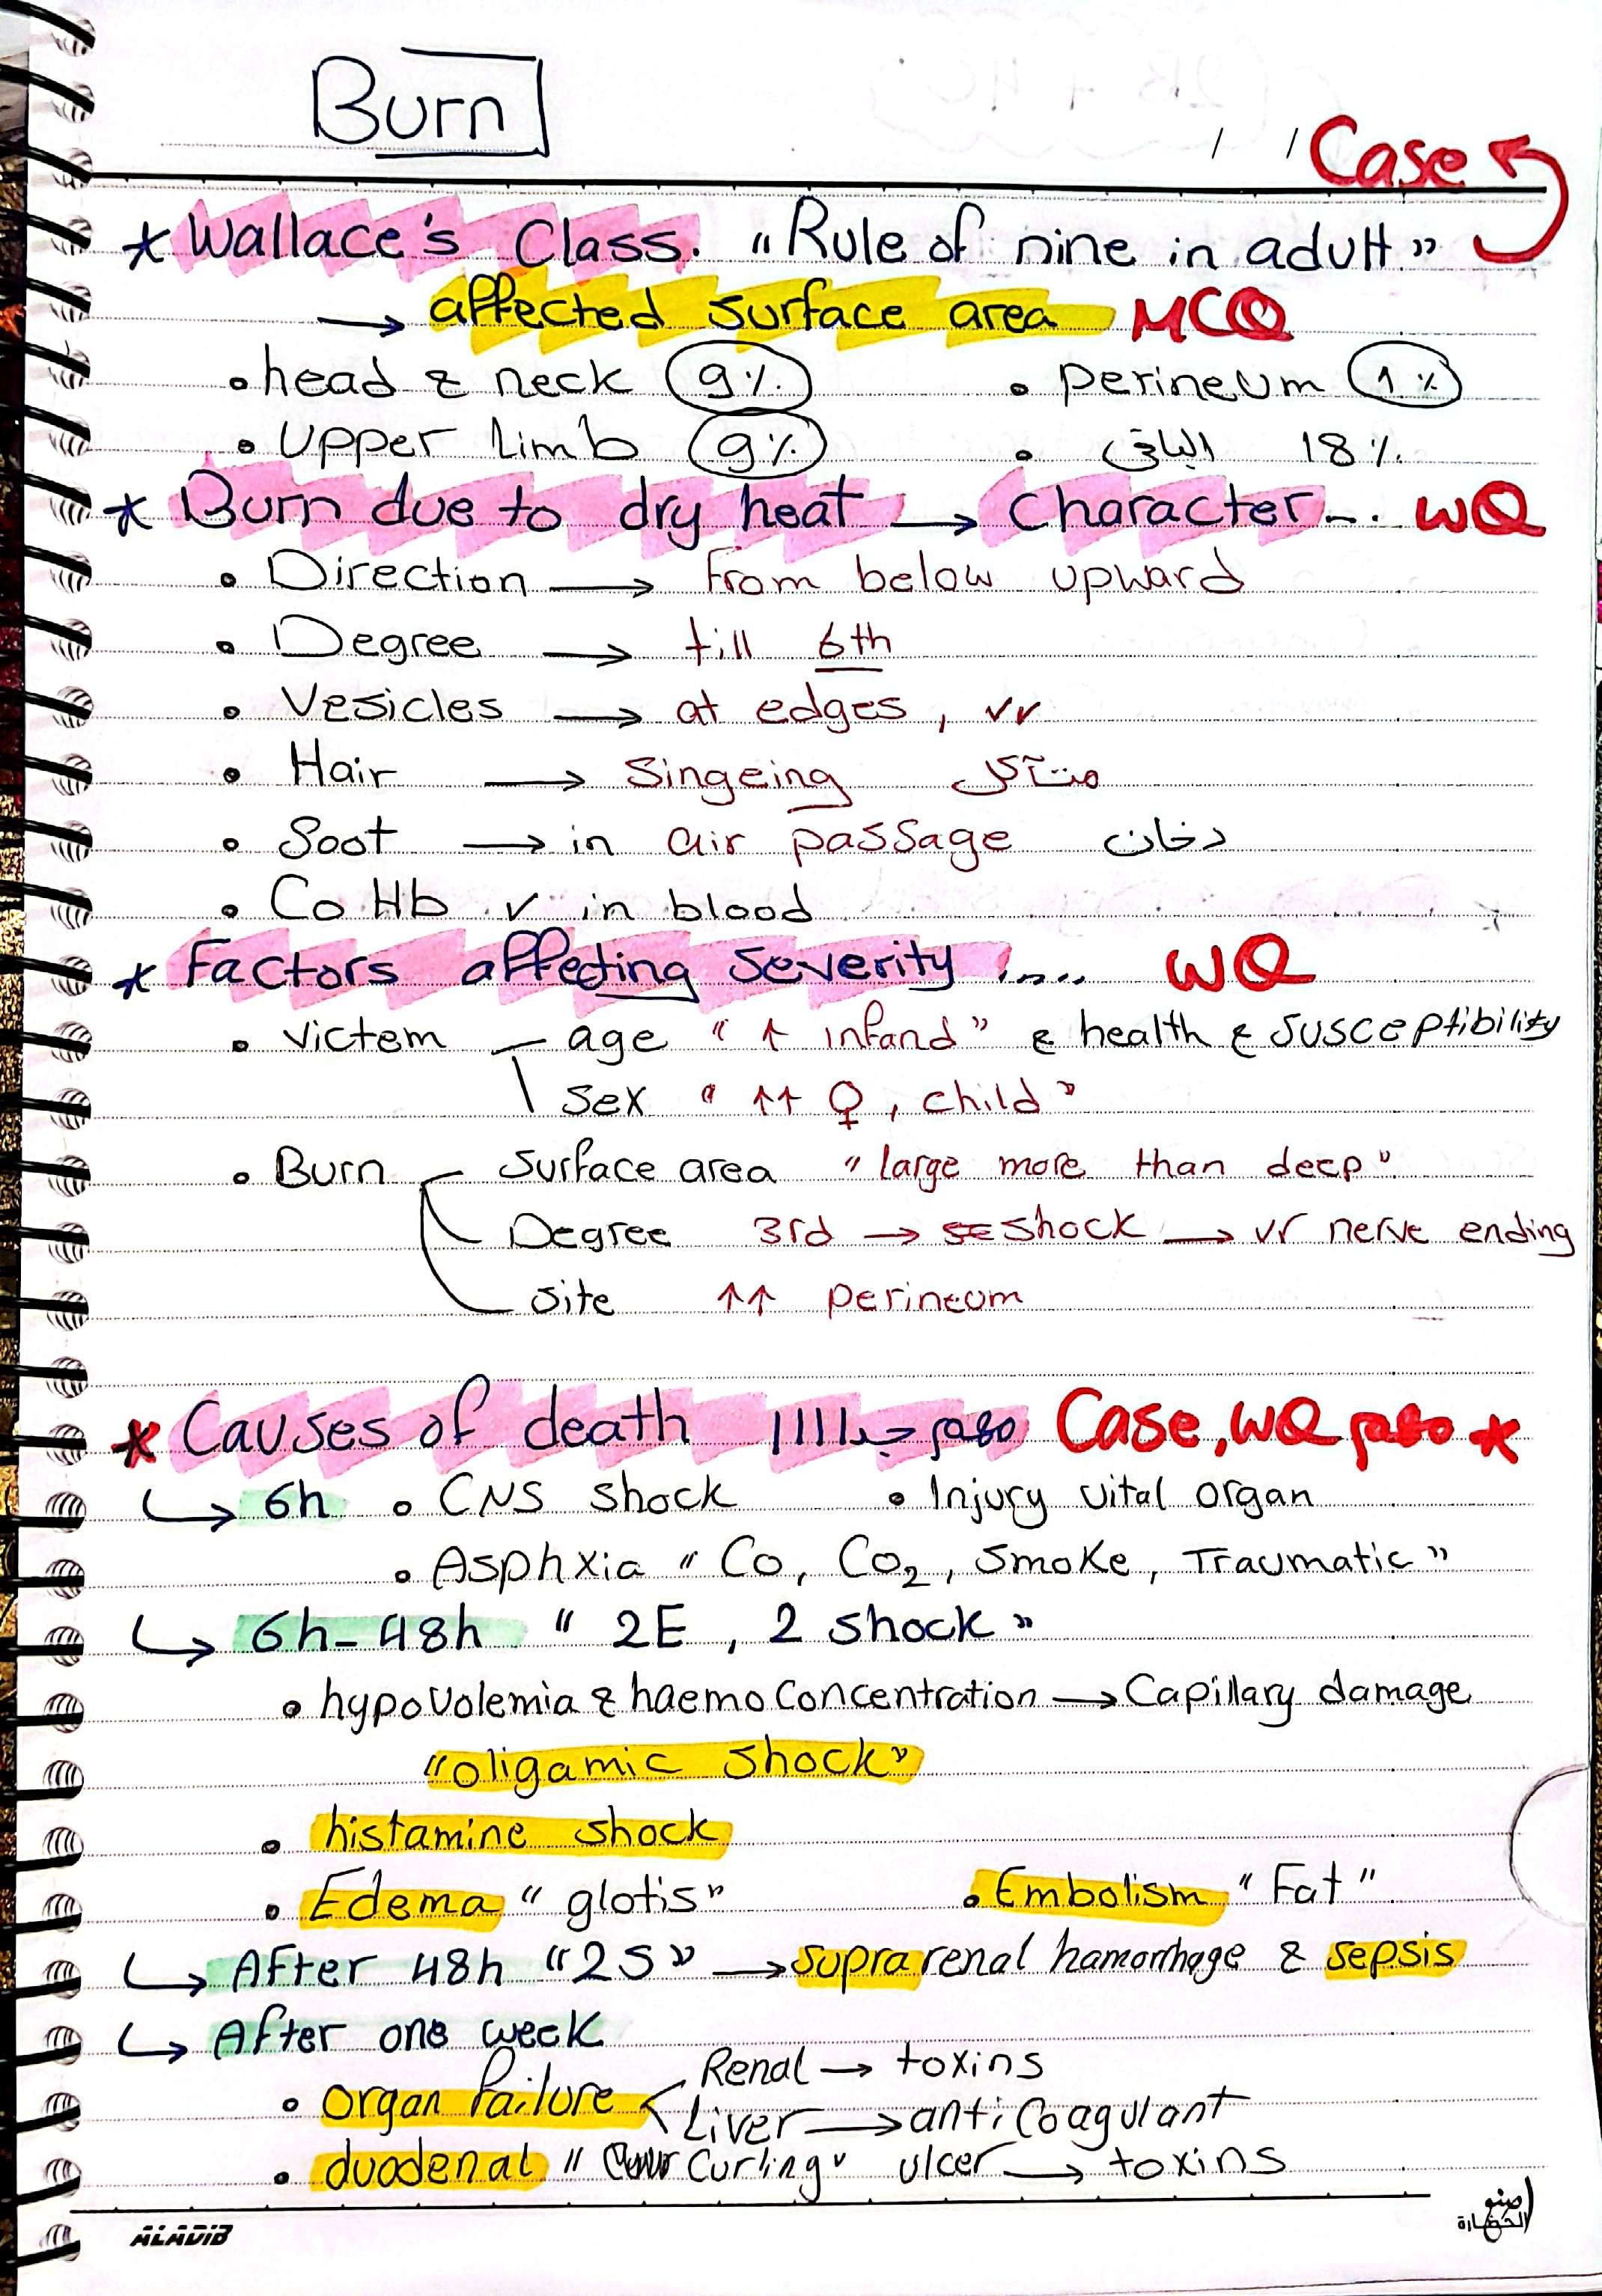 Burn
/ / Case
* Wallace's Class. "Rule of nine in adult"
→ affected surface area MCQ
• head & neck 9% • perineum 1%
• Upper limb 9% • الباقى 18%
* Burn due to dry heat → Character... WQ
• Direction → From below upward
• Degree → till 6th
• Vesicles → at edges, vr
• Hair → Singeing متآكل
• Soot → in air passage دخان
• Co Hb ✓ in blood
* Factors affecting severity .... WQ
• Victem age "↑ infand" & health & susceptibility
Sex "↑↑ ♀, child"
• Burn Surface area "large more than deep"
Degree 3rd → shock → vr nerve ending
Site ↑↑ perineum
* Causes of death مهم جداااا Case, WQ مهم *
↳ 6h • CNS shock • Injury vital organ
• Asphxia "Co, Co₂, smoke, Traumatic"
↳ 6h-48h "2E, 2 shock"
• hypovolemia & haemoconcentration → Capillary damage
"oligamic shock"
• histamine shock
• Edema "glotis" • Embolism "Fat"
↳ After 48h "2S" → suprarenal hamorrhage & sepsis
↳ After one week
• organ failure Renal → toxins
Liver → anticoagulant
• duodenal "Curling" ulcer → toxins
ALADIB
الحضارة